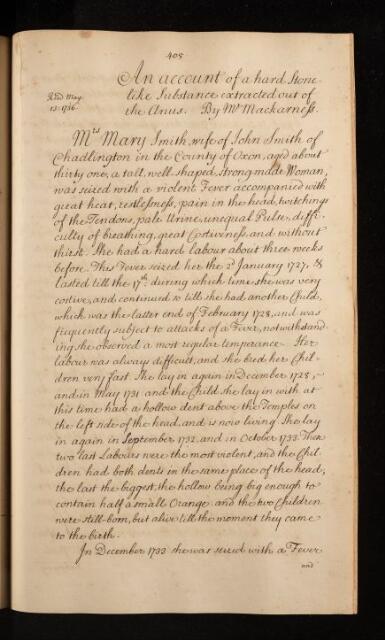 405
An account of a hard Stone-
Read May
13. 1736.
like Substance extracted out of
the Anus. By Mr Mackarness.
Mrs Mary Smith, wife of John Smith of
Chadlington in the County of Oxon, aged about
thirty one, a tall, well shaped, strong made Woman,
was seized with a violent Fever accompanied with
great heat, restlessness, pain in the head, twitchings
of the Tendons, pale Urine, unequal Pulse, diffi-
culty of breathing, great Costiveness, and without
thirst. She had a hard labour about three weeks
before. This Fever seized her the 2d January 1727, &
lasted till the 17th: during which time she was very
costive, and continued so till she had another Child,
which was the latter end of February 1728, and was
frequently subject to attacks of a Fever, notwithstand-
ing she observed a most regular temperance. Her
labour was always difficult, and she bred her Chil-
dren very fast. She lay in again in December 1728,
and in May 1731 and the Child she lay in with at
this time had a hollow dent above the Temples on
the left side of the head, and is now living. She lay
in again in September 1732, and in October 1733. These
two last Labours were the most violent, and the Chil-
dren had both dents in the same place of the head;
the last the biggest, the hollow being big enough to
contain half a small Orange and the two Children
were still-born, but alive till the moment they came
to the birth.
In December 1733 she was seized with a Fever
and